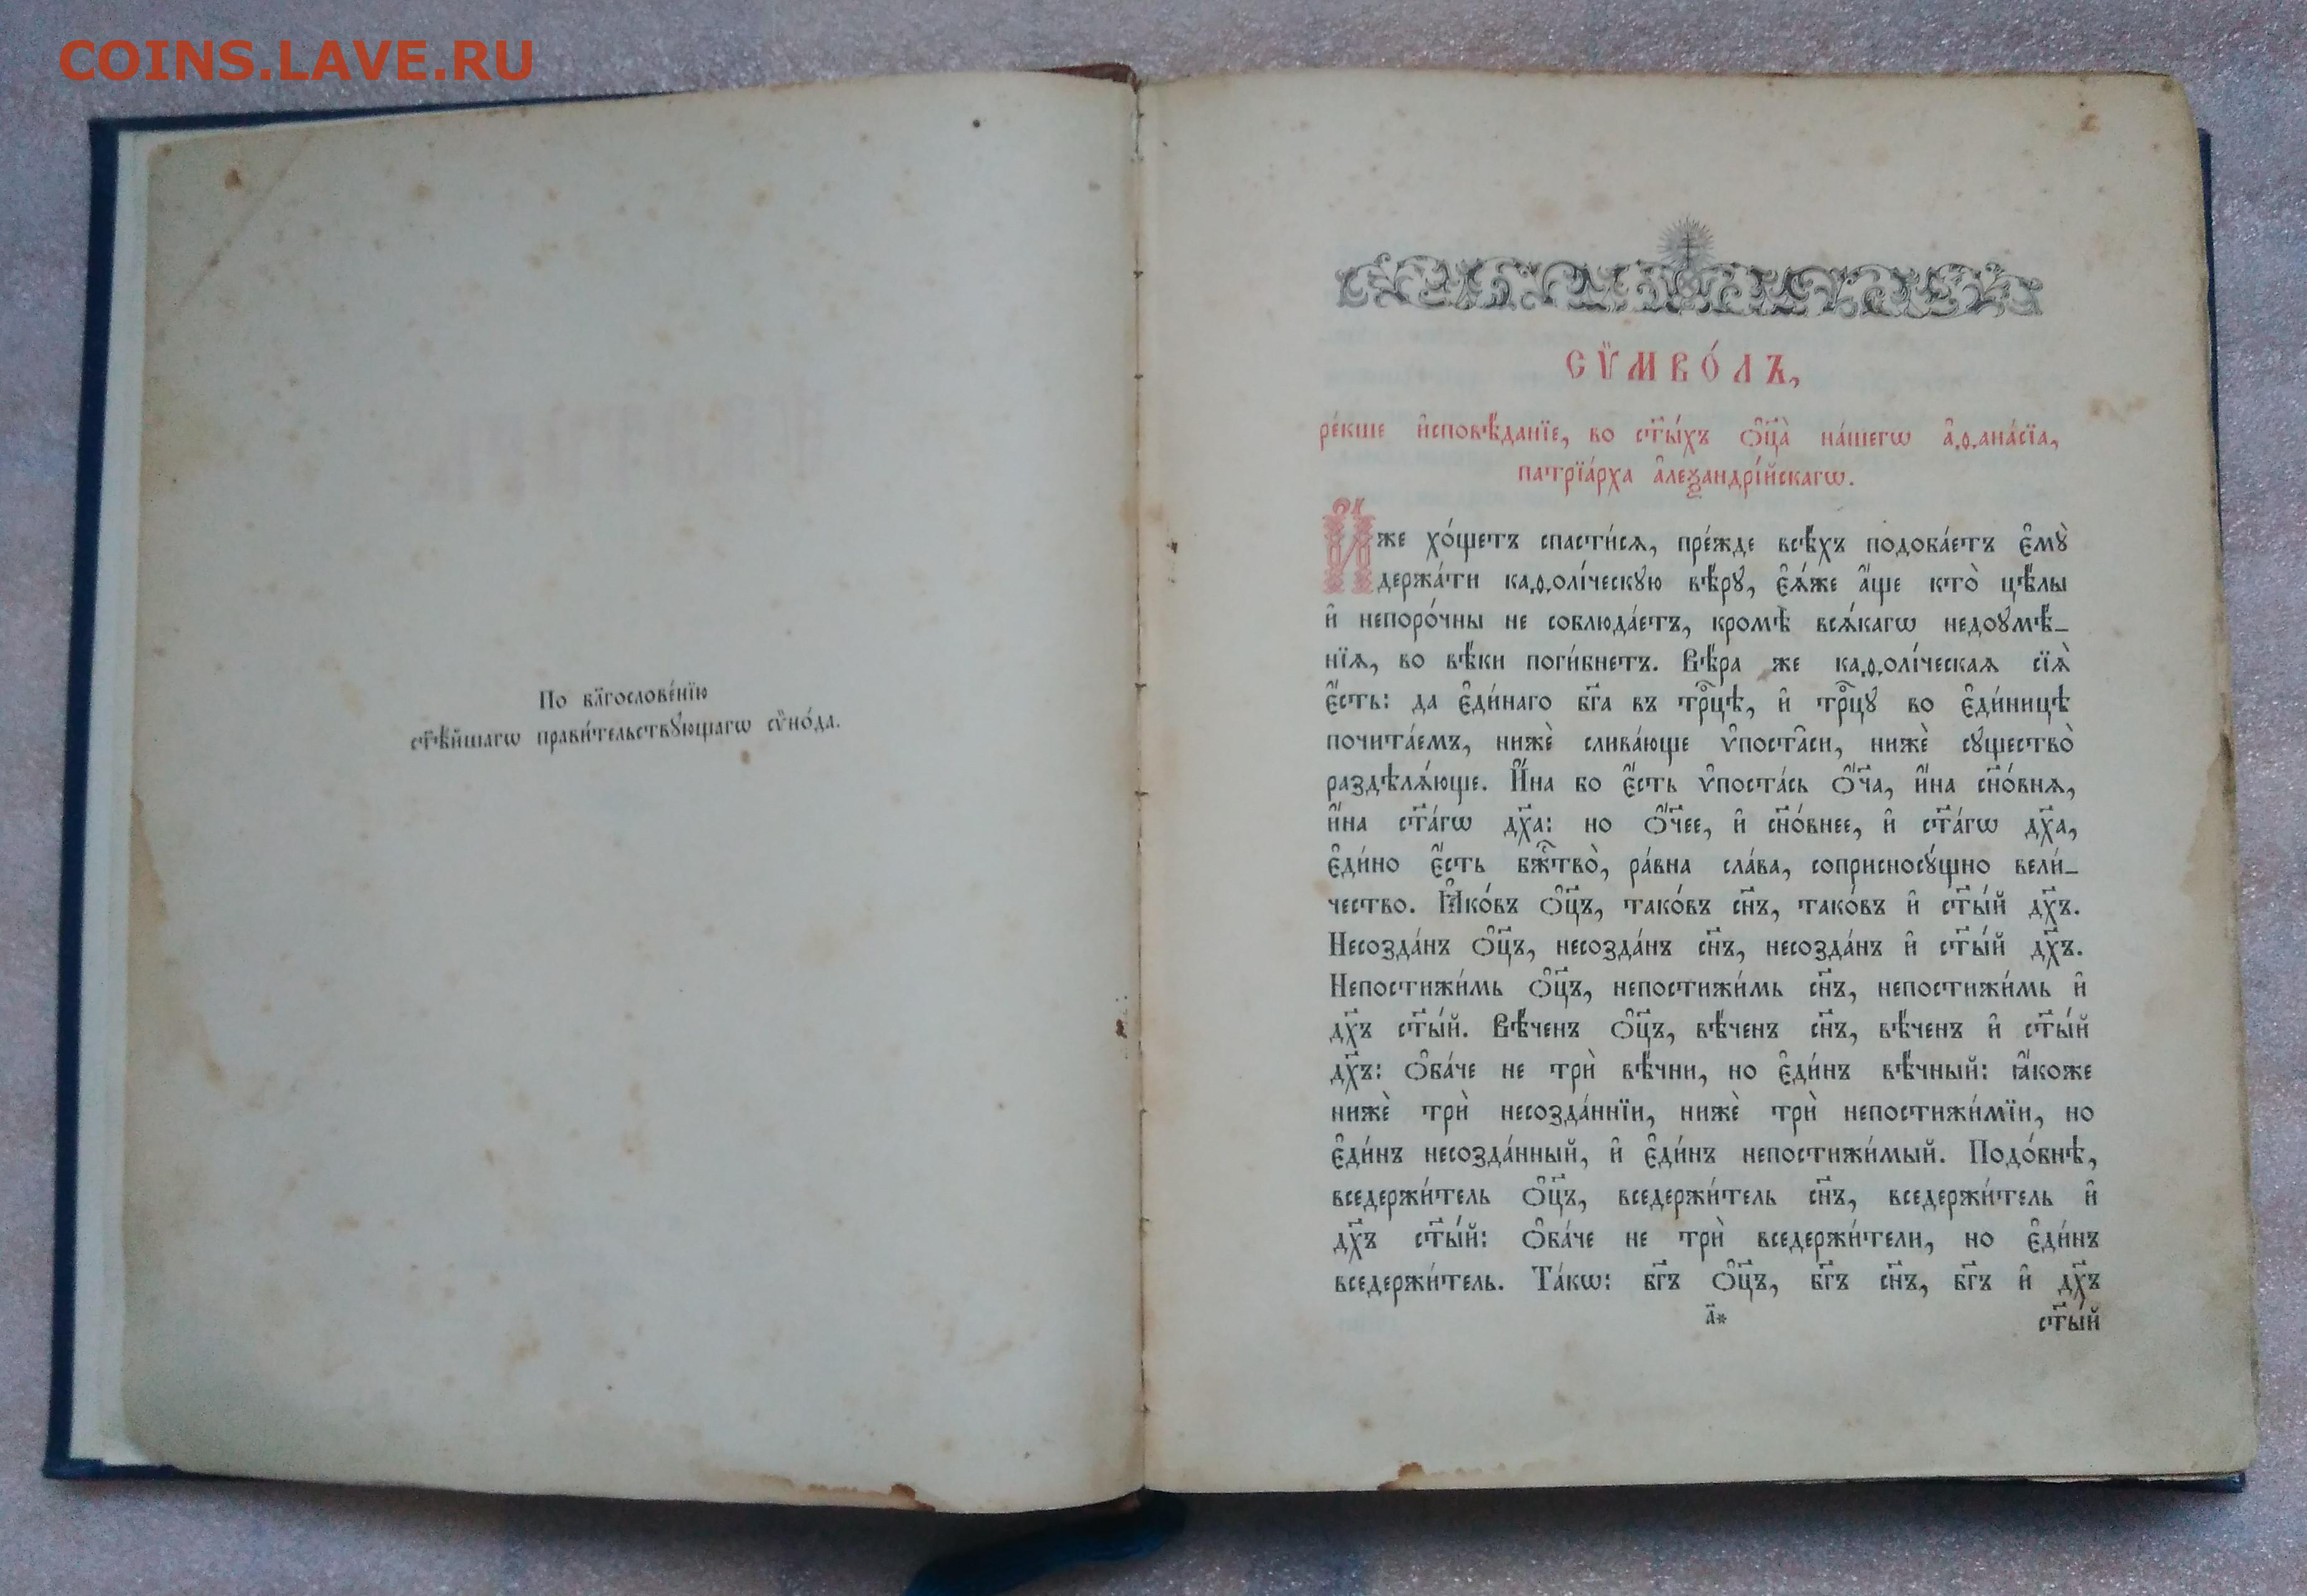 COINS.LAVE.RU
По бл҃гослове́нїю
ст҃ѣ́йшагѡ прави́тельствꙋющагѡ сѷно́да.
СѶМВО́ЛЪ,
ре́кше и҆сповѣ́данїе, во ст҃ы́хъ ѻ҆ц҃а̀ на́шегѡ а҆ѳана́сїа,
патрїа́рха а҆леѯандрі́йскагѡ.
И҆́же хо́щетъ спасти́сѧ, пре́жде всѣ́хъ подоба́етъ є҆мꙋ̀
держа́ти каѳолі́ческꙋю вѣ́рꙋ, є҆ѧ́же а҆́ще кто̀ цѣ́лы
и҆ непоро́чны не соблюда́етъ, кромѣ̀ всѧ́кагѡ недоꙋмѣ́_
нїѧ, во вѣ́ки поги́бнетъ. Вѣ́ра же каѳолі́ческаѧ сїѧ̀
є҆́сть: да є҆ди́наго бг҃а въ трⷪ҇цѣ, и҆ трⷪ҇цꙋ во є҆ди́ницѣ
почита́емъ, нижѐ слива́юще ѵ҆поста̑си, нижѐ сꙋщество̀
раздѣлѧ́юще. И҆́на бо є҆́сть ѵ҆поста́сь ѻ҆́ч҃а, и҆́на сн҃о́внѧ,
и҆́на ст҃а́гѡ дх҃а: но ѻ҆́ч҃ее, и҆ сн҃о́внее, и҆ ст҃а́гѡ дх҃а,
є҆ди́но є҆́сть бжⷭ҇тво̀, ра́вна сла́ва, соприсносꙋ́щно вели́_
чество. Ꙗ҆ко́въ ѻ҆ц҃ъ, тако́въ сн҃ъ, тако́въ и҆ ст҃ы́й дх҃ъ.
Несозда́нъ ѻ҆ц҃ъ, несозда́нъ сн҃ъ, несозда́нъ и҆ ст҃ы́й дх҃ъ.
Непостижи́мь ѻ҆ц҃ъ, непостижи́мь сн҃ъ, непостижи́мь и҆
дх҃ъ ст҃ы́й. Вѣ́ченъ ѻ҆ц҃ъ, вѣ́ченъ сн҃ъ, вѣ́ченъ и҆ ст҃ы́й
дх҃ъ: ѻ҆ба́че не трѝ вѣ́чни, но є҆ди́нъ вѣ́чный: ꙗ҆́коже
нижѐ трѝ несозда́ннїи, нижѐ трѝ непостижи́мїи, но
є҆ди́нъ несозда́нный, и҆ є҆ди́нъ непостижи́мый. Подо́бнѣ,
вседержи́тель ѻ҆ц҃ъ, вседержи́тель сн҃ъ, вседержи́тель и҆
дх҃ъ ст҃ы́й: ѻ҆ба́че не трѝ вседержи́тели, но є҆ди́нъ
вседержи́тель. Та́кѡ: бг҃ъ ѻ҆ц҃ъ, бг҃ъ сн҃ъ, бг҃ъ и҆ дх҃ъ
а҃*
ст҃ы́й